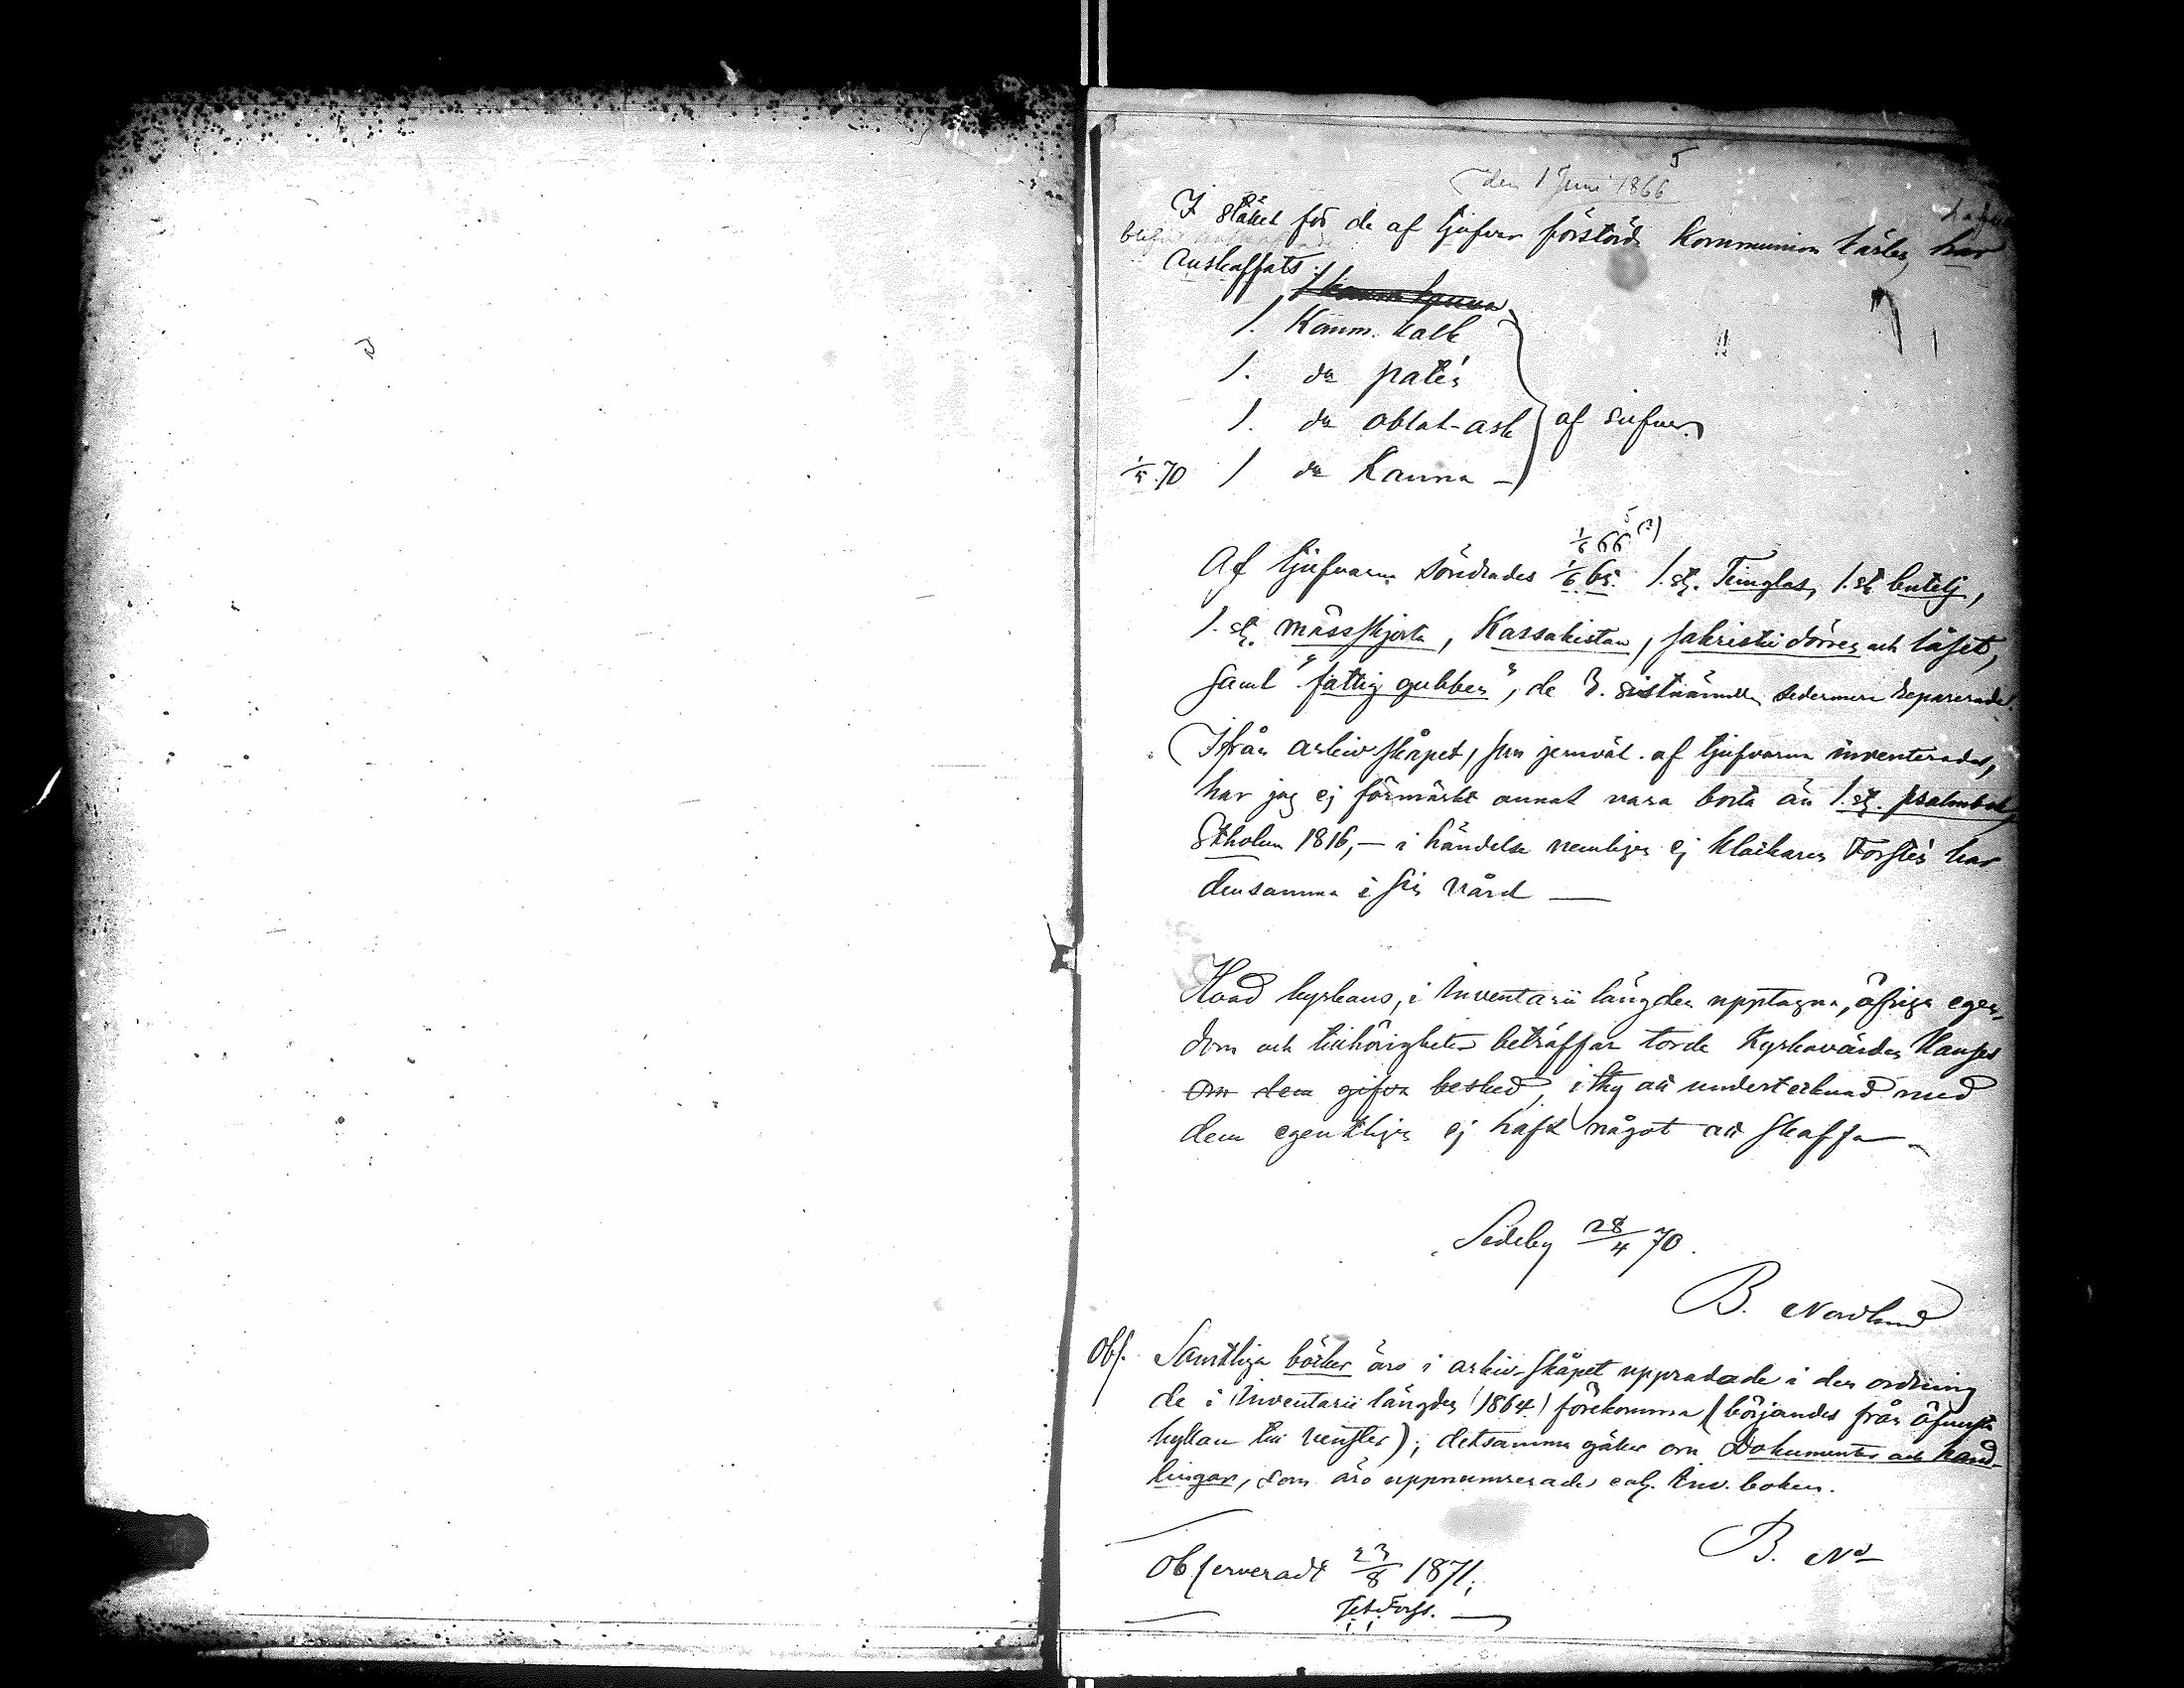 5
den 1 Juni 1866
I stället för de af tjufvar förstörda Kommunion kärlen, har
blifvit
Anskaffats:
1. Komm. kalk
1. do patén
1. do oblat-ask } af silfver
1/5 70 1 do Kanna —
1/6 66 5 (?)
Af tjufvarna söndrades 1/6 65. 1. st. Timglas, 1. st butelj,
1. st. mässkjorta, Kassakistan, sakristie dörren och låset,
samt "fattig gubben", de 3. sistnämnda sedermera reparerade.
Ifrån arkivskåpet, som jemväl af tjufvarna inventerades,
har jag ej förmärkt annat vara borta än 1. st. psalmbok,
Stholm 1816, — i händelse nemligen ej klockaren Forstén har
densamma i sin vård —
Hvad kyrkans, i Inventarii längden upptagna, öfriga egen-
dom och tillhörigheter beträffar torde Kyrkovärden Hanses
om dem gifva besked, ithy att undertecknad med
dem egentligen ej haft något att skaffa —
Sideby 28/4 70.
B. Nordlund
Obs. Samtliga böcker äro i arkiv-skåpet uppradade i den ordning
de i Inventarii längden (1864) förekomma (börjandes från öfversta
hyllan till venster); detsamma gäller om Dokumenter och hand-
lingar, som äro uppnumrerade enl. Inv. boken.
B. Nd
Observeradt 23/8 1871;